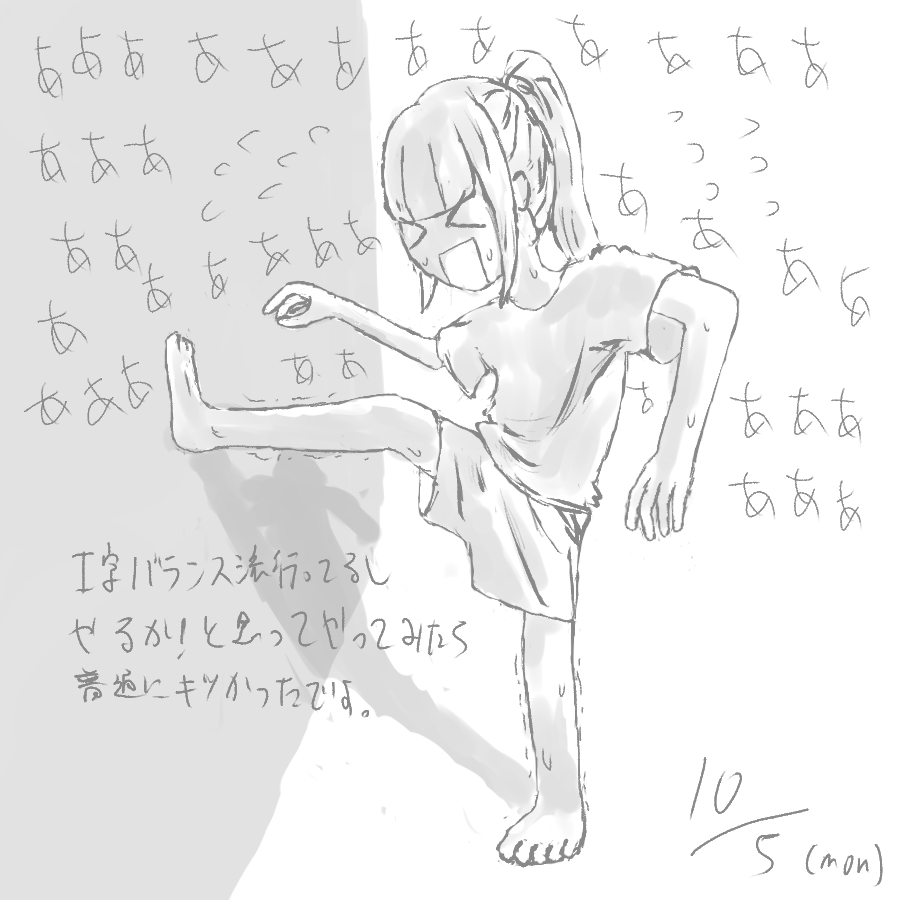 あああああああああああああ
あああ
あ
あ
あああああああ
あ
あ
ああ
あああ
あ
あああ
あああ
I字バランス流行ってるし
やるか!と思ってやってみたら
普通にキツかったです。
10/5 (mon)